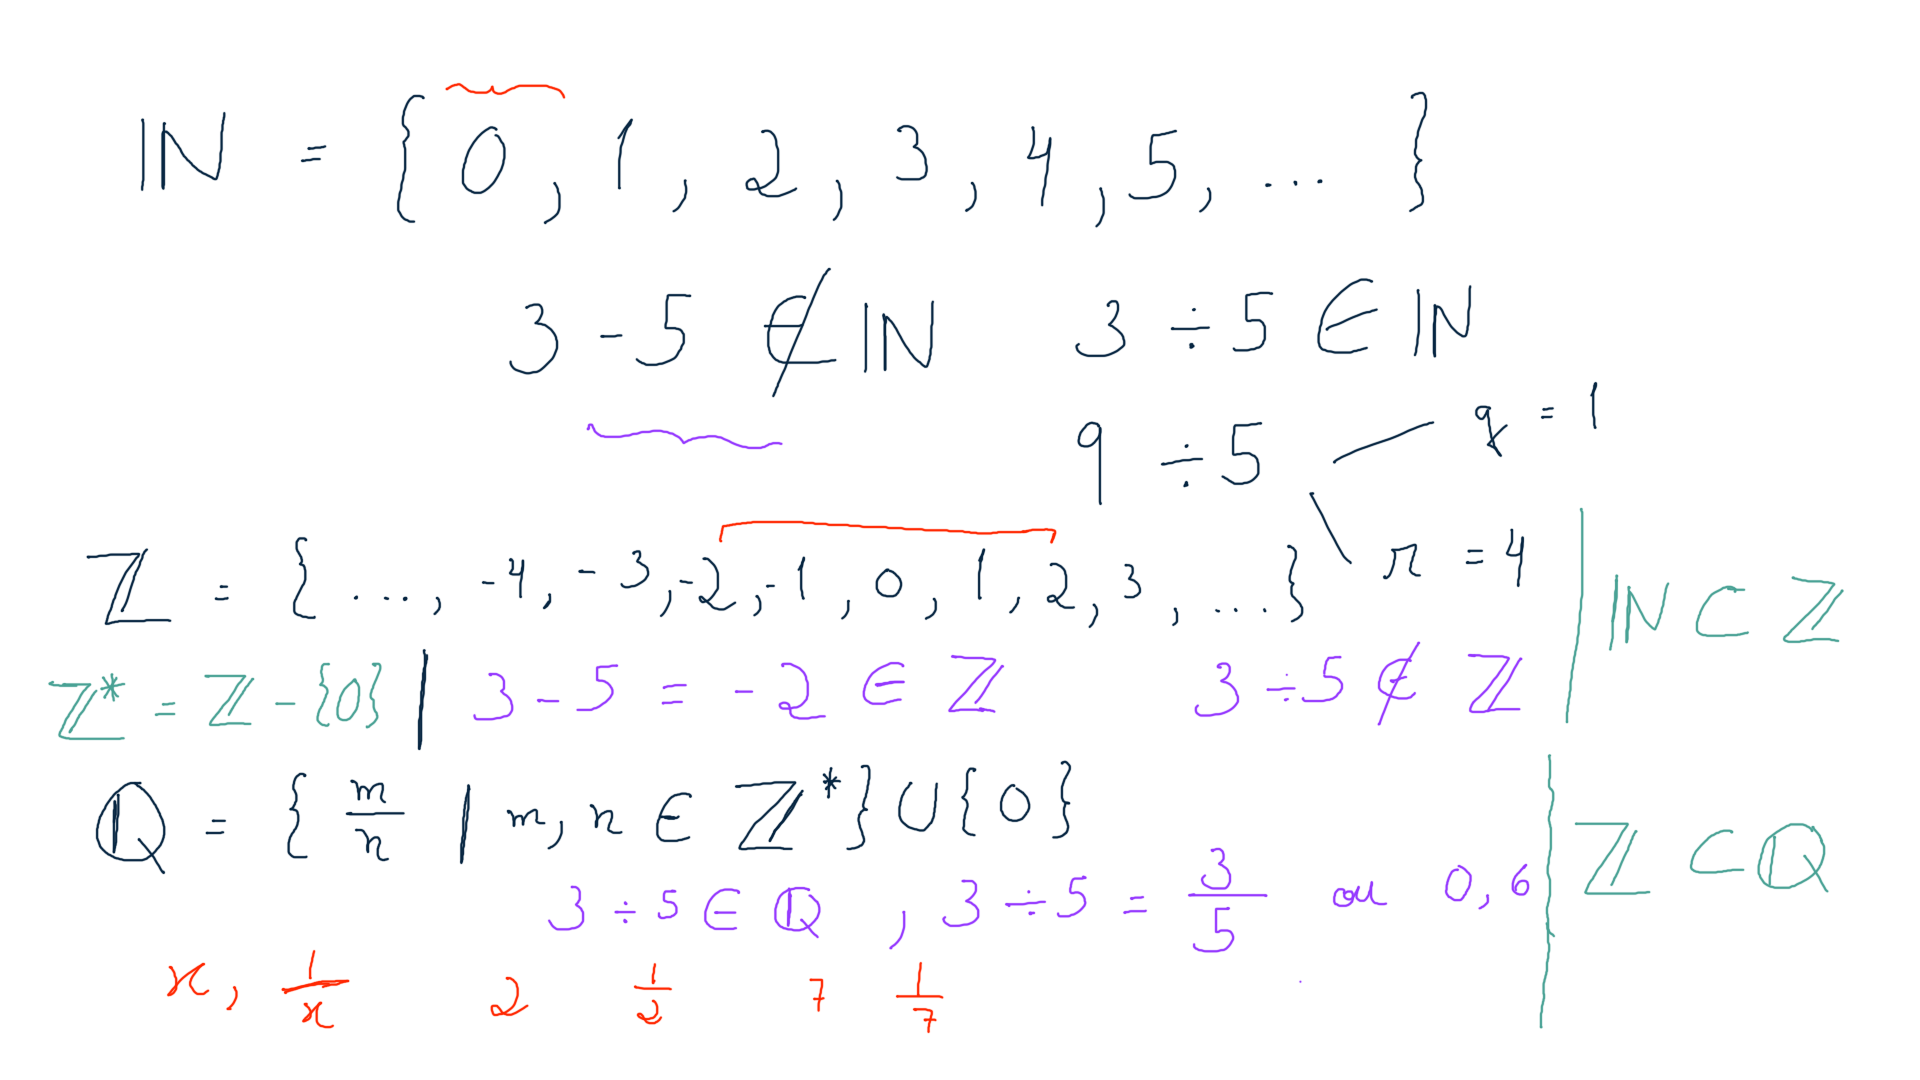 ℕ = { 0, 1, 2, 3, 4, 5, ... }
3 - 5 ∉ ℕ 3 ÷ 5 ∈ ℕ
9 ÷ 5 q = 1
r = 4
ℤ = { ..., -4, -3, -2, -1, 0, 1, 2, 3, ... }
ℕ ⊂ ℤ
ℤ* = ℤ - {0} | 3 - 5 = -2 ∈ ℤ 3 ÷ 5 ∉ ℤ
ℚ = { m/n | m, n ∈ ℤ* } ∪ { 0 }
ℤ ⊂ ℚ
3 ÷ 5 ∈ ℚ , 3 ÷ 5 = 3/5 ou 0,6
x, 1/x 2 1/2 7 1/7